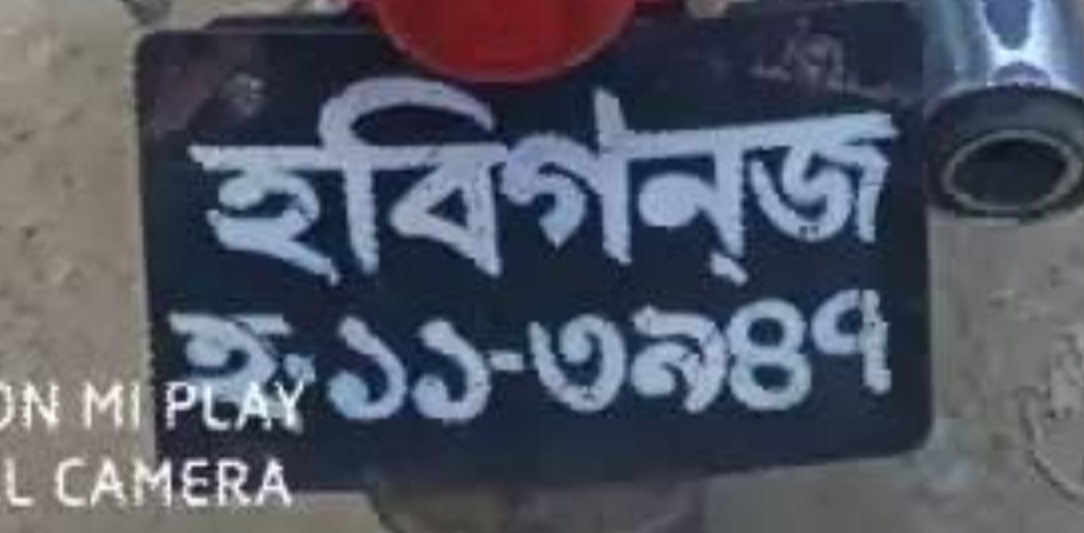 হবিগন্জ
হ-১১-৩৯৪৭
ON MI PLAY
L CAMERA